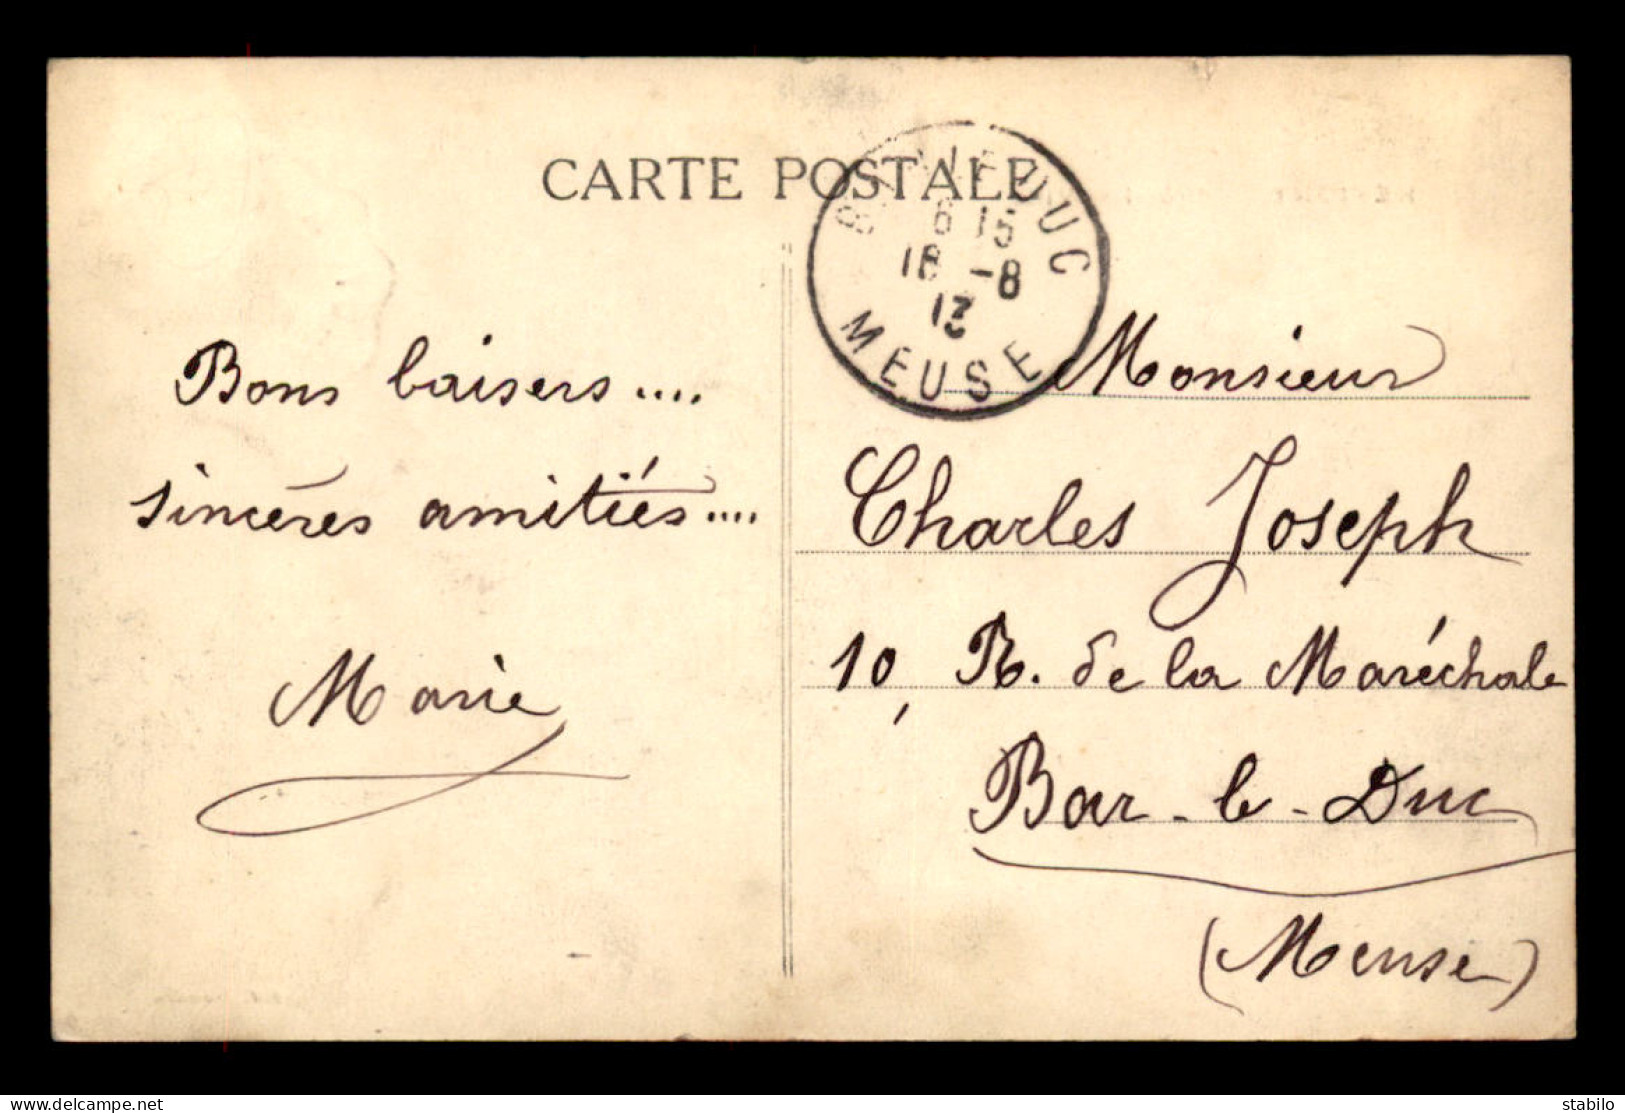 CARTE POSTALE
BAR-LE-DUC
6 15
18 -8
13
MEUSE
Bons baisers....
sincères amitiés....
Marie
Monsieur
Charles Joseph
10, R. de la Maréchale
Bar-le-Duc
(Meuse)
www.delcampe.net
stabilo